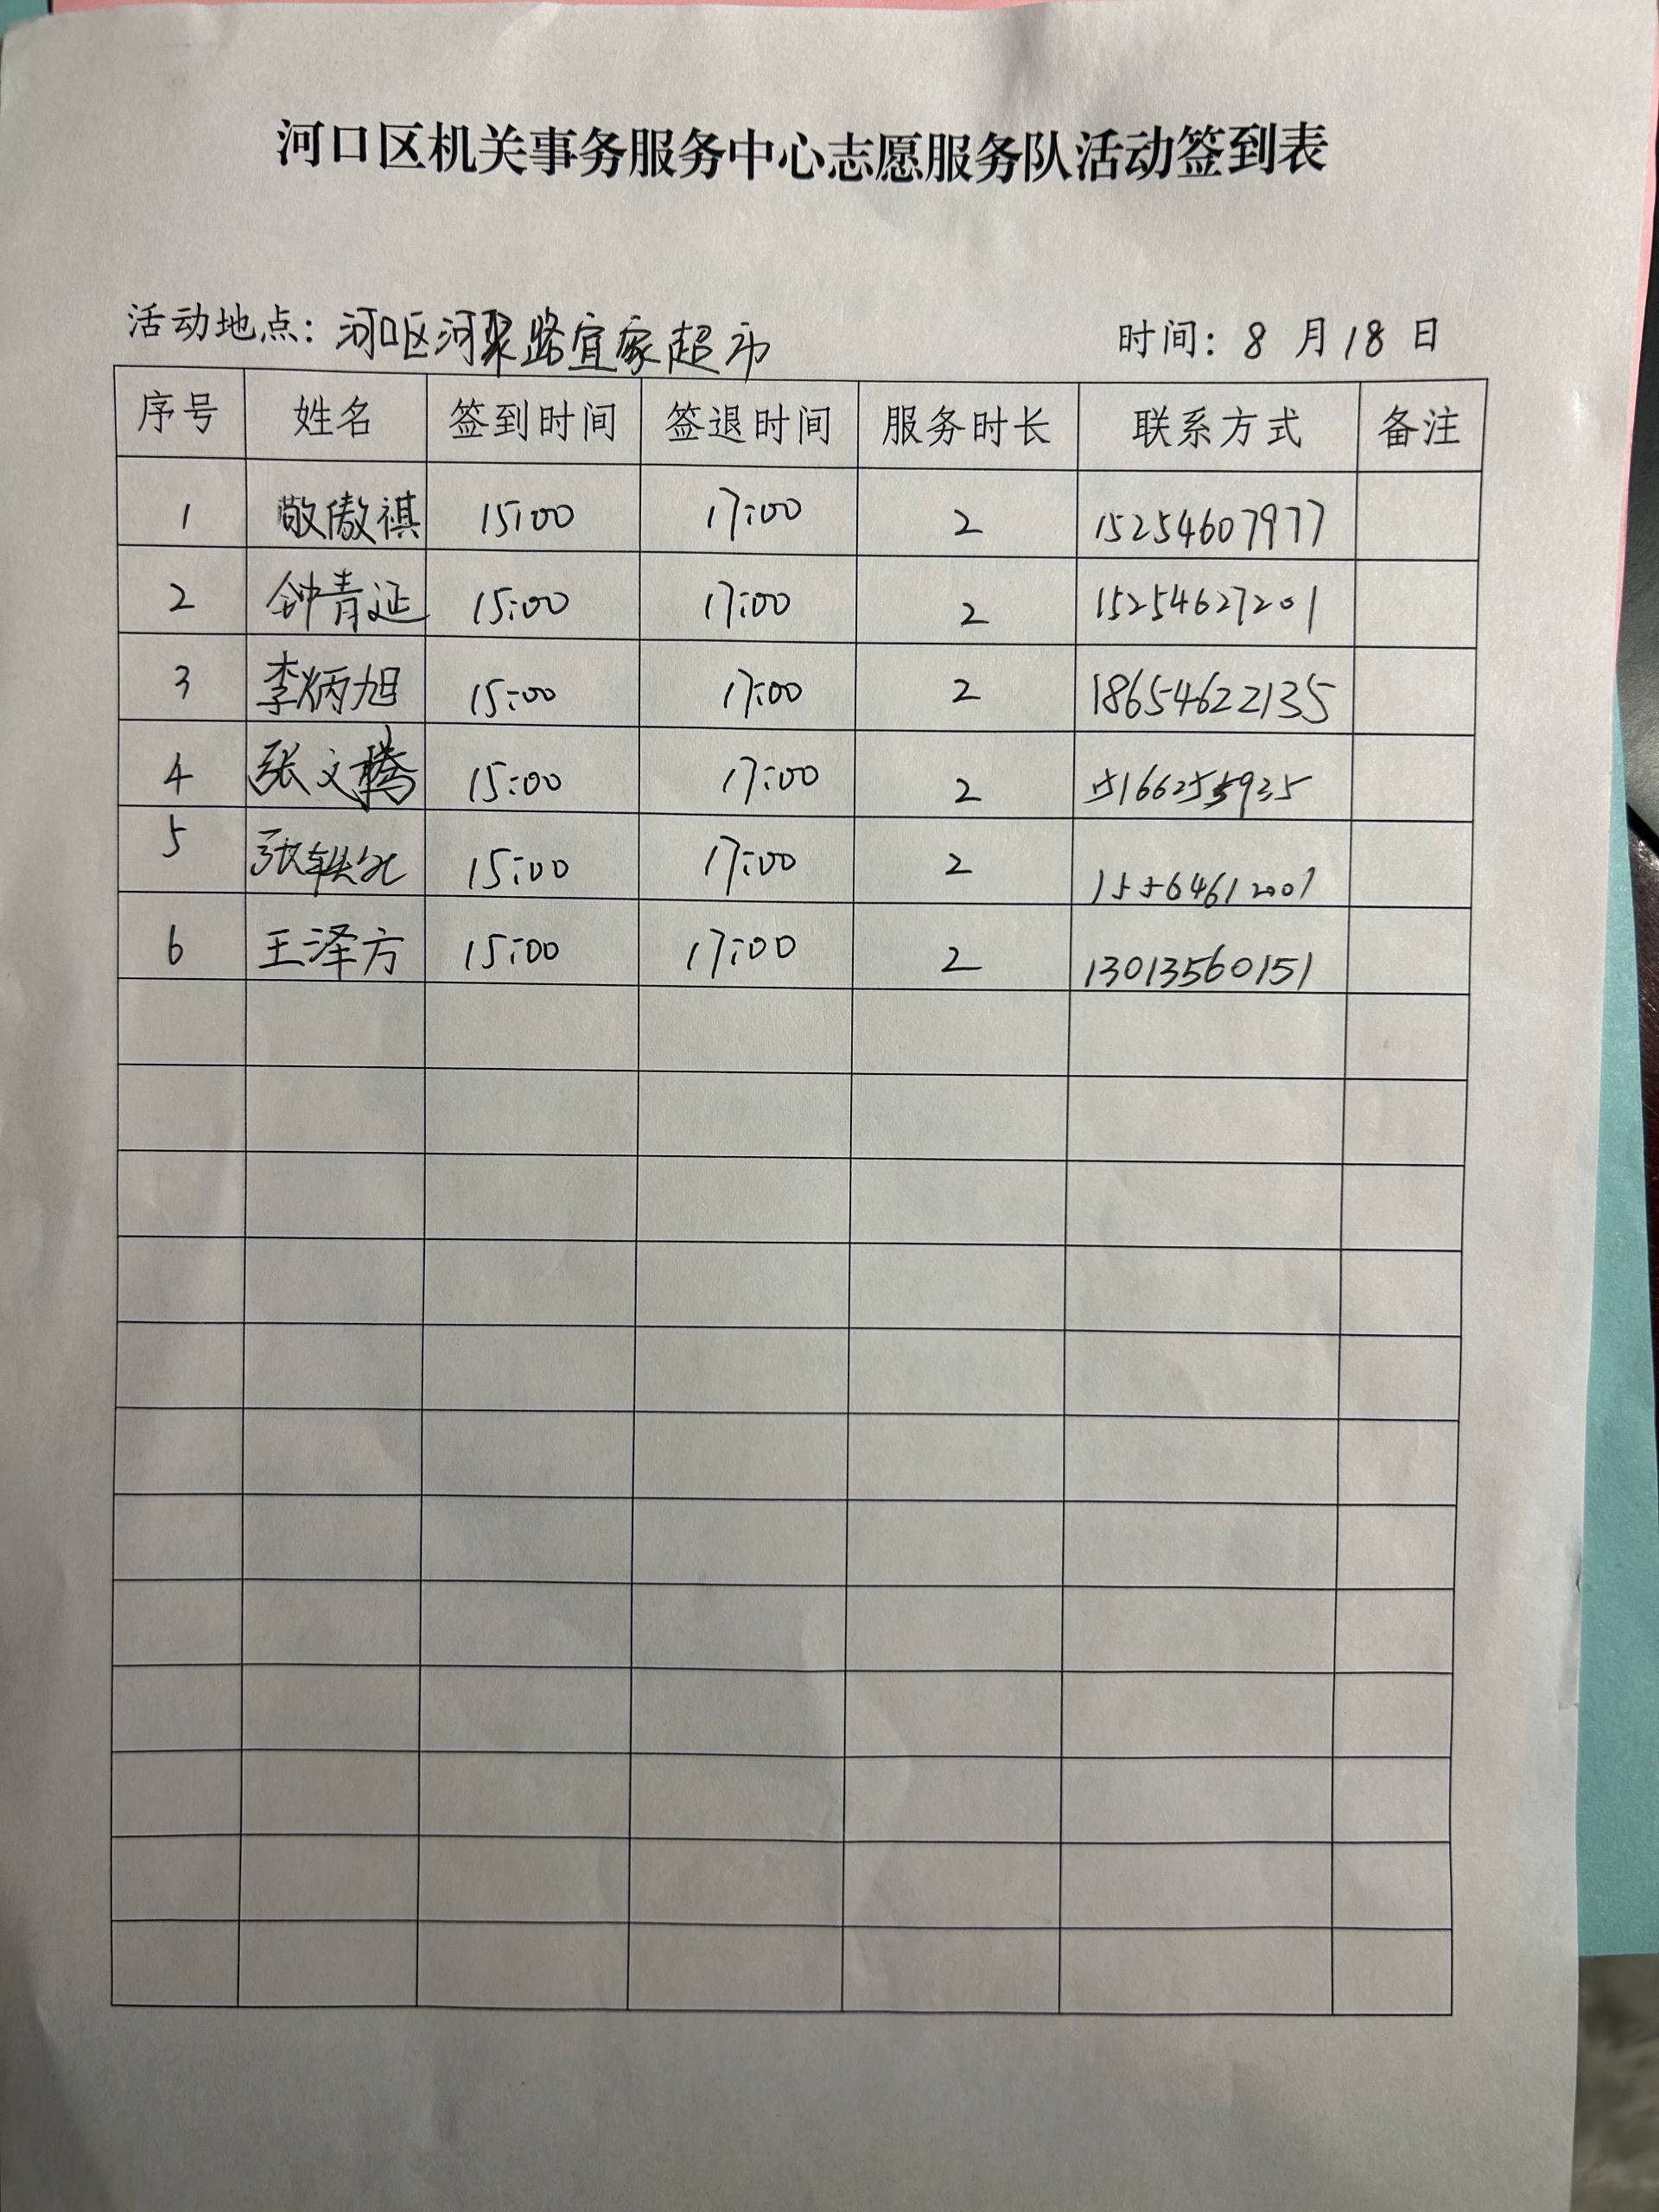 河口区机关事务服务中心志愿服务队活动签到表
活动地点：河口区河聚路宜家超市 时间：8 月 18 日
序号 姓名 签到时间 签退时间 服务时长 联系方式 备注
1 敬傲祺 15:00 17:00 2 15254607977
2 钟青延 15:00 17:00 2 15254627201
3 李炳旭 15:00 17:00 2 18654622135
4 张文腾 15:00 17:00 2
5 15:00 17:00 2 15564612001
6 王泽方 15:00 17:00 2 13013560151